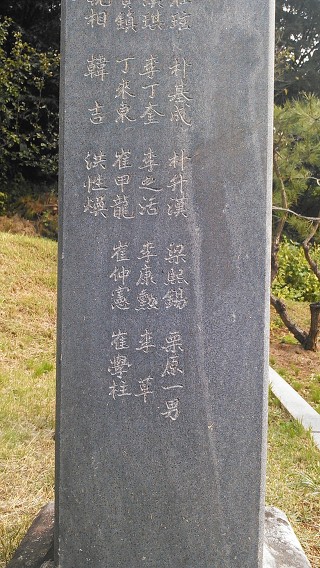 朴基成 朴升漢 梁熙錫 栗原一男
琪 李丁奎 李之活 李康勲 李草
鎭 丁來東 崔甲龍 崔仲憲 崔學柱
相 韓吉 洪性煥